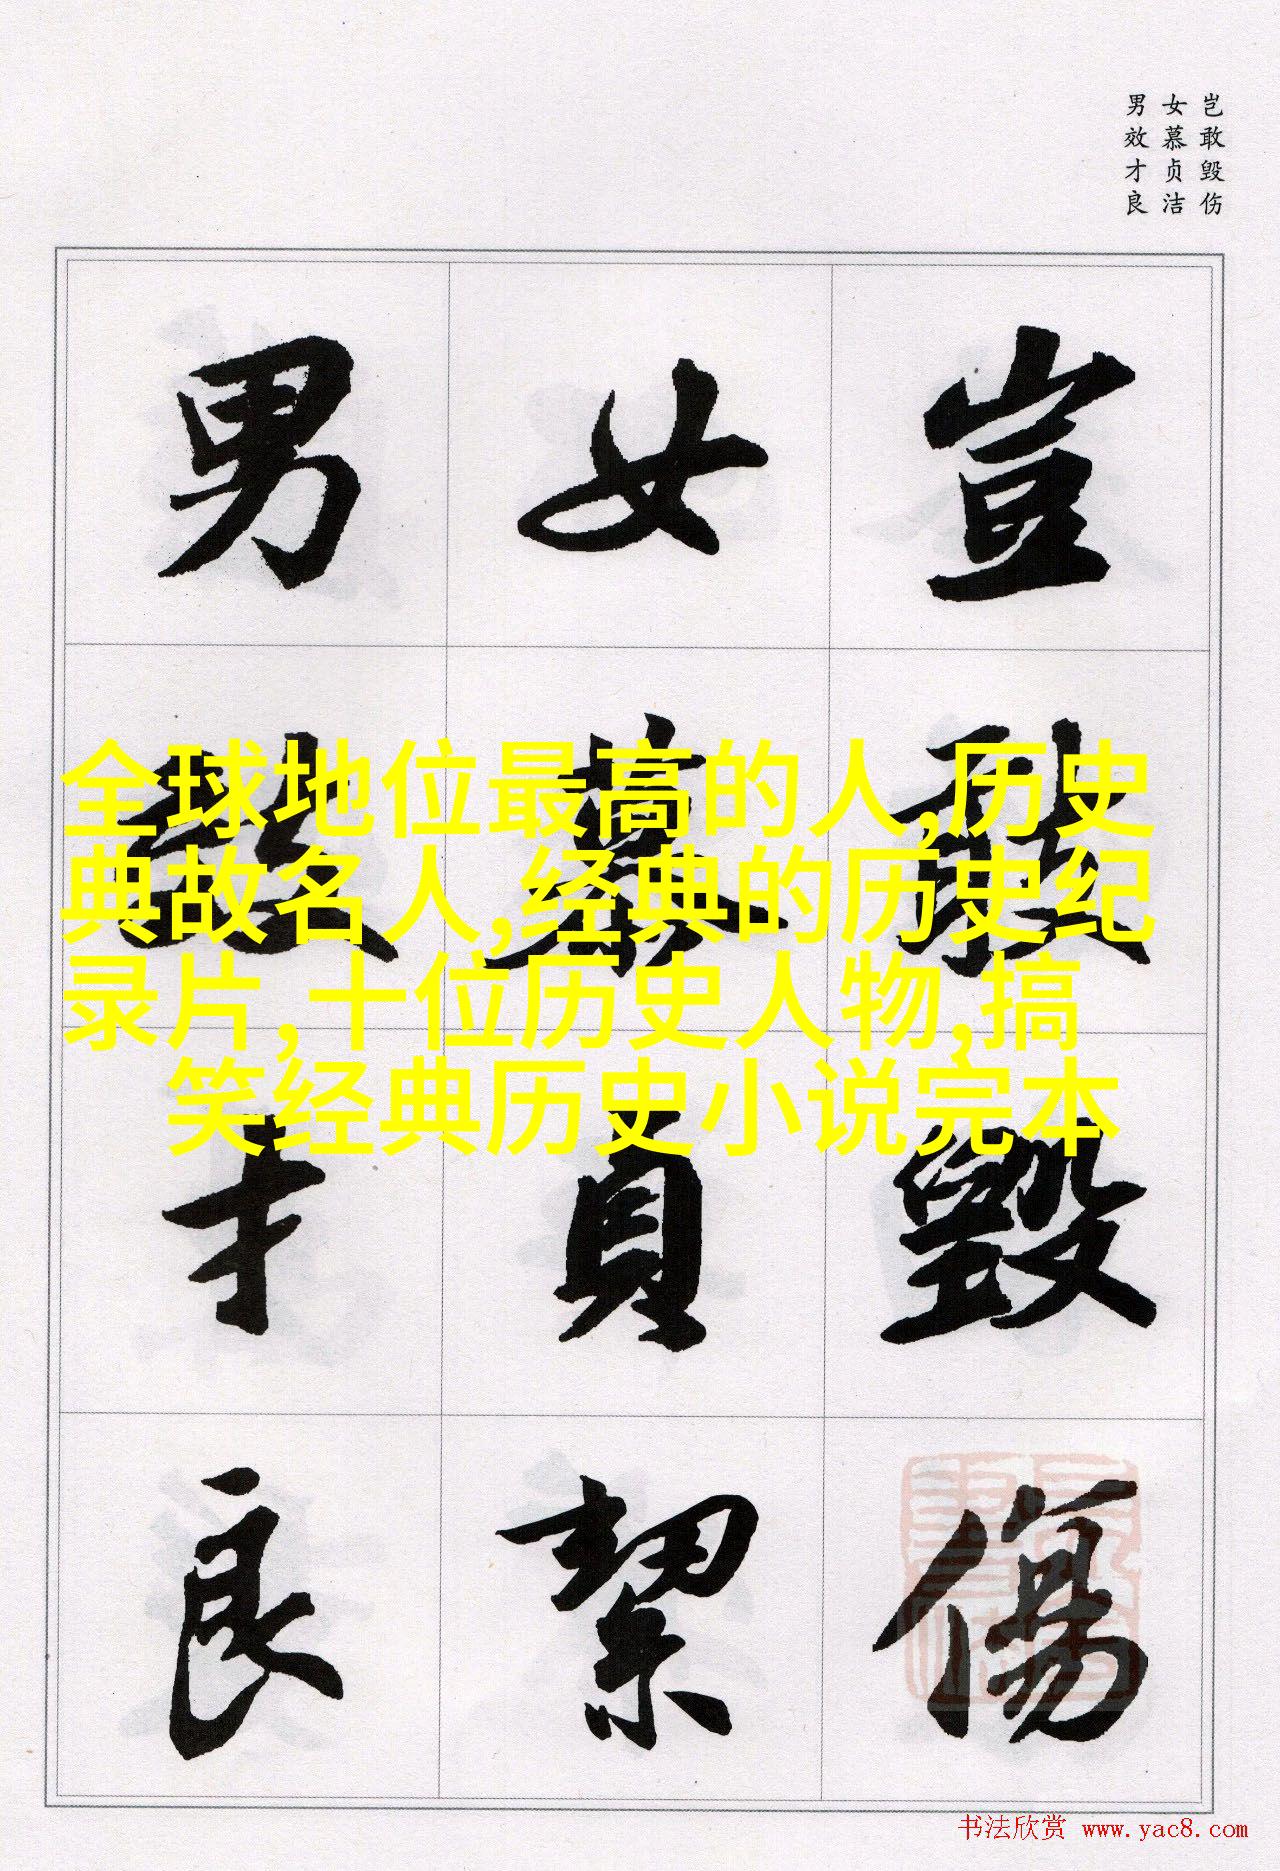 岂敢毁伤
女慕贞洁
男效才良
豈敢毀傷
女慕貞絜
男效才良
全球地位最高的人,历史
典故名人,经典的历史纪
录片,十位历史人物,搞
笑经典历史小说完本
书法欣赏 www.yac8.com